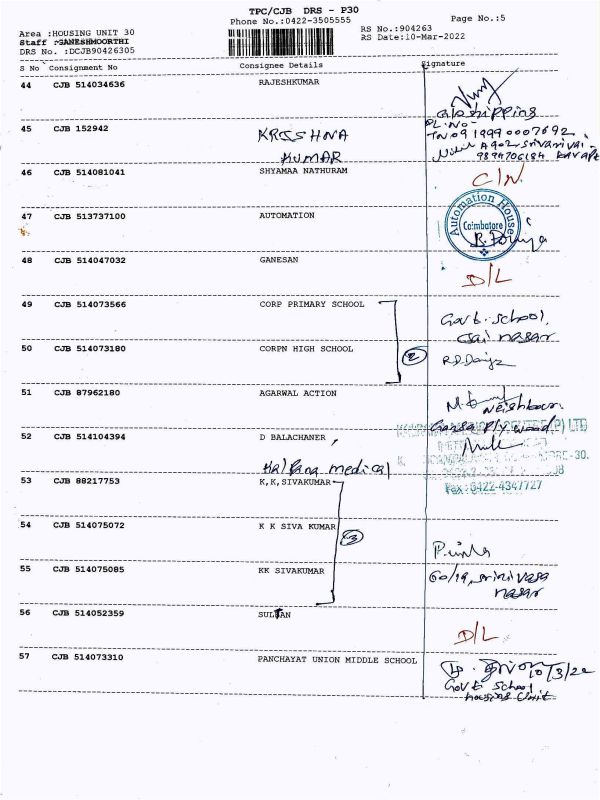 TPC/CJB DRS - P30
Phone No.:0422-3505555
Page No.:5
Area :HOUSING UNIT 30
RS No.:904263
Staff :GANESHMOORTHI
RS Date:10-Mar-2022
DRS No. :DCJB90426305
S No Consignment No Consignee Details Signature
44 CJB 514034636 RAJESHKUMAR
45 CJB 152942 KRISHNA
KUMAR
PL.NO-
TN 09 19990007692
9894706184
46 CJB 514081041 SHYAMAA NATHURAM
C/N
47 CJB 513737100 AUTOMATION
Automation House
Coimbatore
48 CJB 514047032 GANESAN
D/L
49 CJB 514073566 CORP PRIMARY SCHOOL
Govt. school,
Jai nagar
50 CJB 514073180 CORPN HIGH SCHOOL
2
51 CJB 87962180 AGARWAL ACTION
Neighbour
52 CJB 514104394 D BALACHANER
Plywood
(P) LTD
Kalpana medical
53 CJB 88217753 K,K,SIVAKUMAR
Fax: 0422-4347727
54 CJB 514075072 K K SIVA KUMAR
3
55 CJB 514075085 KK SIVAKUMAR
60/19, srinivasa
nagar
56 CJB 514052359 SULTAN
D/L
57 CJB 514073310 PANCHAYAT UNION MIDDLE SCHOOL
10/3/22
Govt School
Housing Unit